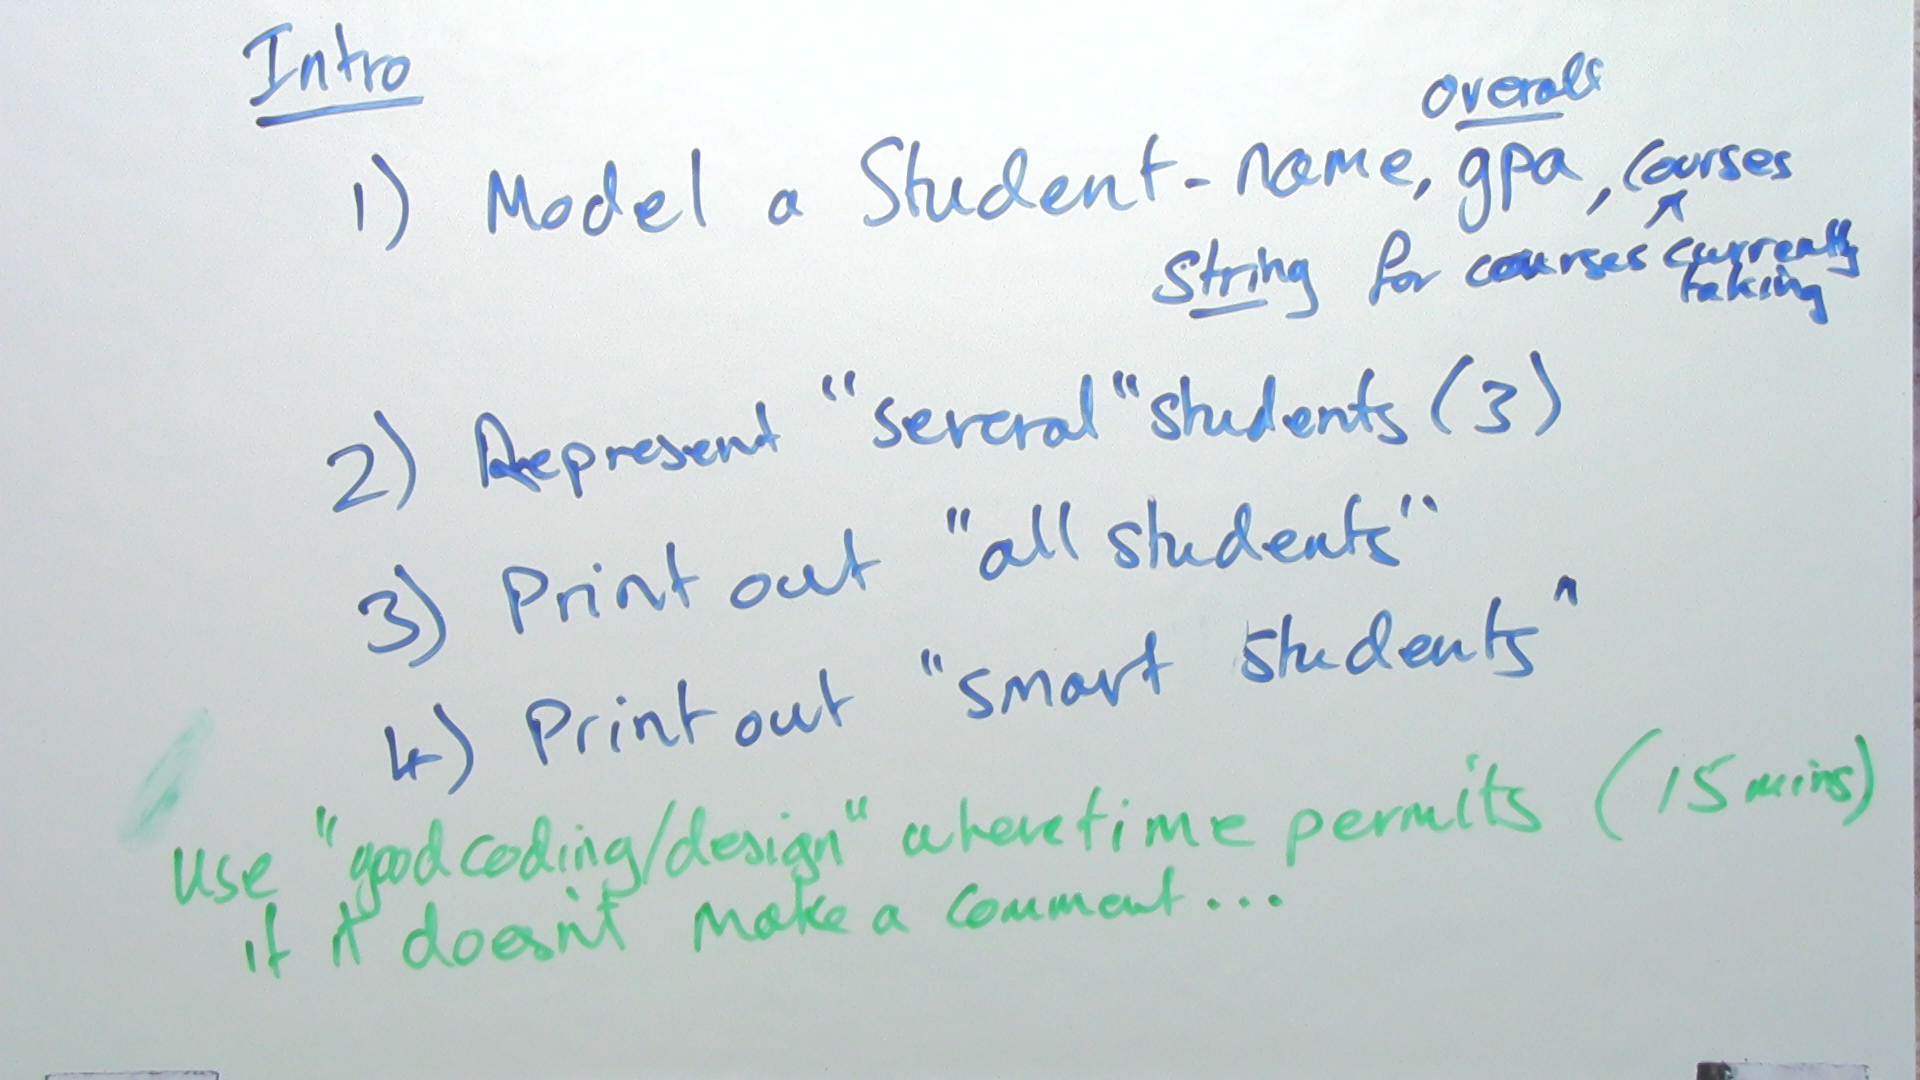 Intro
overall
1) Model a Student - name, gpa, courses
String for courses currently
taking
2) Represent "several" students (3)
3) Print out "all students"
4) Print out "smart students"
Use "good coding/design" where time permits (15 mins)
if it doesn't make a comment...